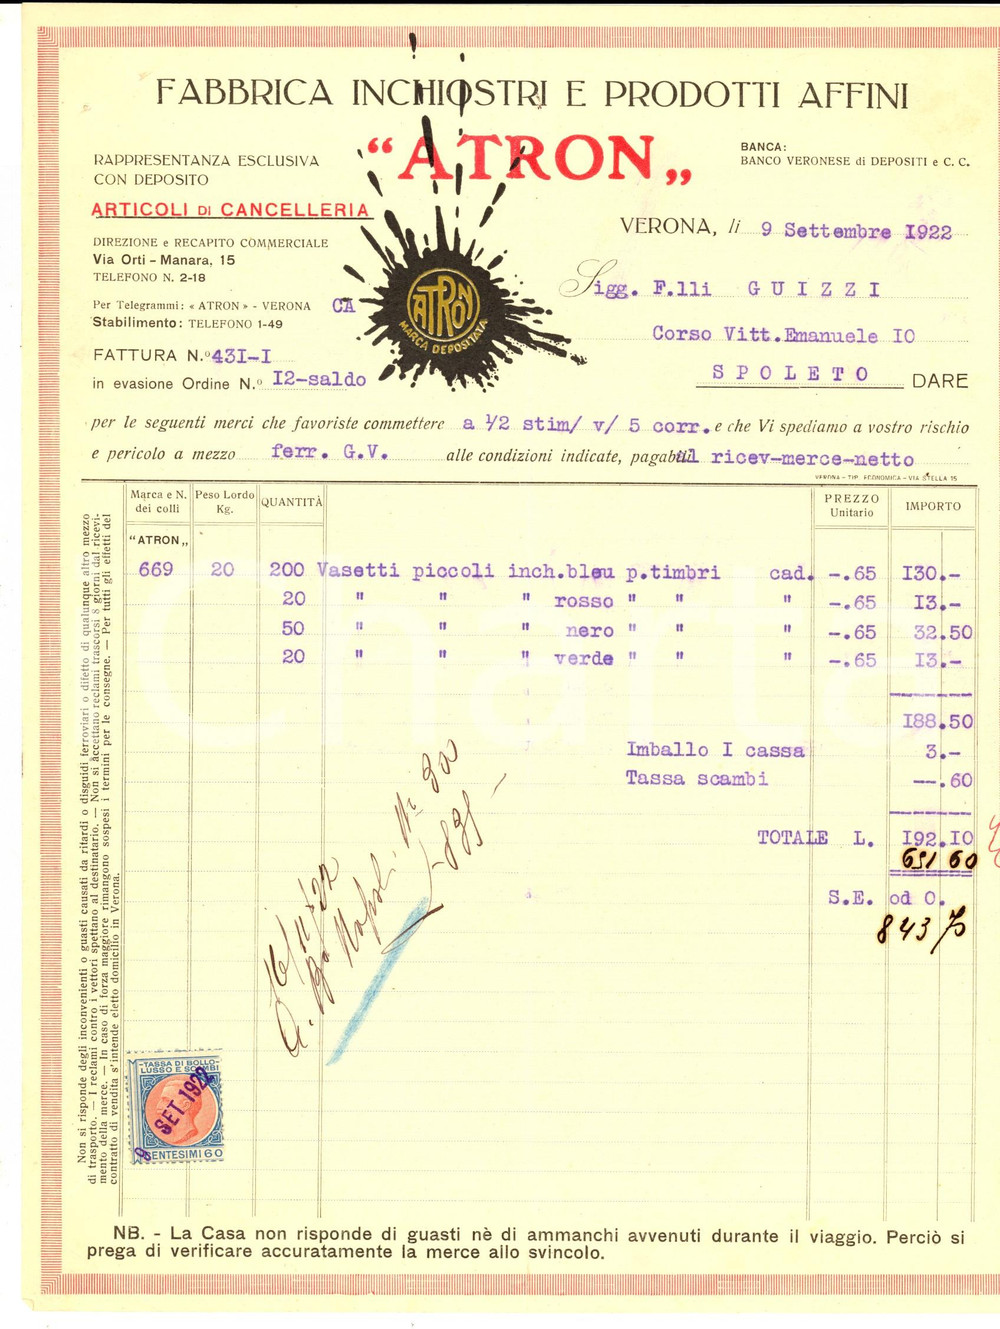 FABBRICA INCHIOSTRI E PRODOTTI AFFINI
“ATRON„
RAPPRESENTANZA ESCLUSIVA
CON DEPOSITO
ARTICOLI DI CANCELLERIA
BANCA:
BANCO VERONESE di DEPOSITI e C. C.
DIREZIONE e RECAPITO COMMERCIALE
Via Orti - Manara, 15
TELEFONO N. 2-18
Per Telegrammi: « ATRON » - VERONA CA
Stabilimento: TELEFONO 1-49
FATTURA N.º 43I-I
in evasione Ordine N.º I2-saldo
ATRON
MARCA DEPOSITATA
VERONA, li 9 Settembre I922
Sigg. F.lli GUIZZI
Corso Vitt.Emanuele IO
SPOLETO DARE
per le seguenti merci che favoriste commettere a 1/2 stim/ v/ 5 corr. e che Vi spediamo a vostro rischio
e pericolo a mezzo ferr. G.V. alle condizioni indicate, pagabili al ricev-merce-netto
VERONA - TIP. ECONOMICA - VIA STELLA 15
Marca e N. dei colli Peso Lordo Kg. QUANTITÀ PREZZO Unitario IMPORTO
“ATRON„
669 20 200 Vasetti piccoli inch.bleu p.timbri cad. -.65 I30.-
20 " " " rosso " " " -.65 I3.-
50 " " " nero " " " -.65 32.50
20 " " " verde " " " -.65 I3.-
I88.50
Imballo I cassa 3.-
Tassa scambi -.60
TOTALE L. I92.IO
651 60
S.E. od O.
843 70
Non si risponde degli inconvenienti o guasti causati da ritardi o disguidi ferroviari o difetto di qualunque altro mezzo
di trasporto. — I reclami contro i vettori spettano al destinatario. — Non si accettano reclami trascorsi 8 giorni dal ricevi-
mento della merce. — In caso di forza maggiore rimangono sospesi i termini per le consegne. — Per tutti gli effetti del
contratto di vendita s'intende eletto domicilio in Verona.
TASSA DI BOLLO
LUSSO E SCAMBI
9 SET 1922
CENTESIMI 60
NB. - La Casa non risponde di guasti nè di ammanchi avvenuti durante il viaggio. Perciò si
prega di verificare accuratamente la merce allo svincolo.